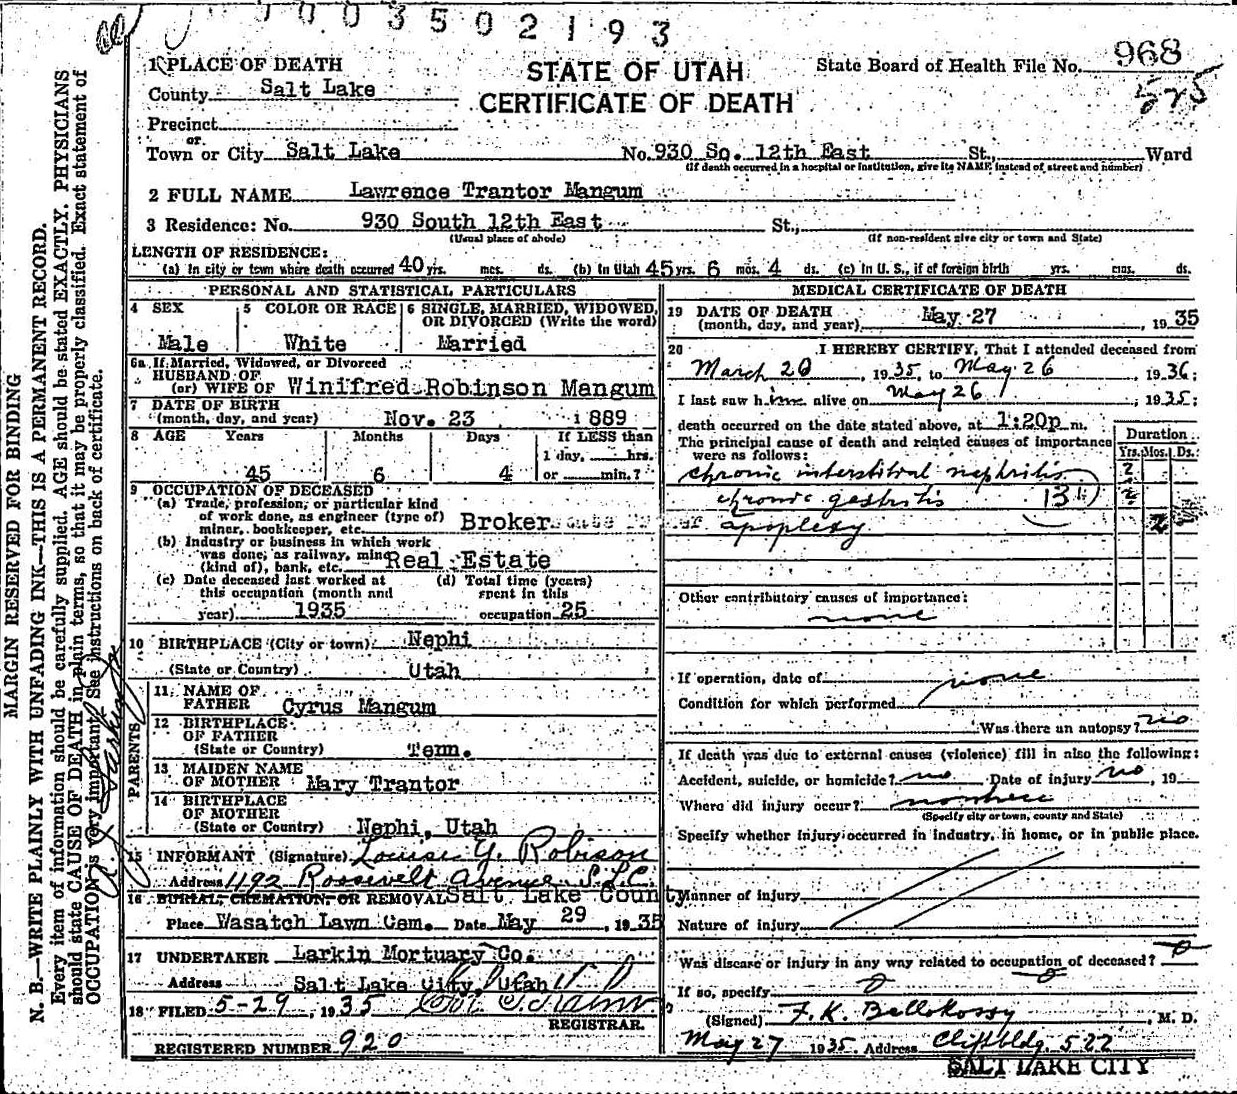 0003502193
968
525
1 PLACE OF DEATH
STATE OF UTAH
CERTIFICATE OF DEATH
State Board of Health File No.
County Salt Lake
Precinct
or
Town or City Salt Lake No. 930 So. 12th East St., Ward
(If death occurred in a hospital or institution, give its NAME instead of street and number)
2 FULL NAME Lawrence Trantor Mangum
3 Residence: No. 930 South 12th East St.,
(Usual place of abode) (If non-resident give city or town and State)
LENGTH OF RESIDENCE:
(a) In city or town where death occurred 40 yrs. mos. ds. (b) In Utah 45 yrs. 6 mos. 4 ds. (c) In U. S., if of foreign birth yrs. mos. ds.
PERSONAL AND STATISTICAL PARTICULARS
4 SEX Male
5 COLOR OR RACE White
6 SINGLE, MARRIED, WIDOWED, OR DIVORCED (Write the word) Married
6a If Married, Widowed, or Divorced
HUSBAND OF
(or) WIFE OF Winifred Robinson Mangum
7 DATE OF BIRTH
(month, day, and year) Nov. 23 1889
8 AGE Years Months Days If LESS than
1 day, hrs.
45 6 4 or min.?
9 OCCUPATION OF DECEASED
(a) Trade, profession, or particular kind
of work done, as engineer (type of)
miner, bookkeeper, etc. Broker
(b) Industry or business in which work
was done, as railway, mine
(kind of), bank, etc. Real Estate
(c) Date deceased last worked at
this occupation (month and
year) 1935
(d) Total time (years)
spent in this
occupation 25
10 BIRTHPLACE (City or town) Nephi
(State or Country) Utah
PARENTS
11 NAME OF
FATHER Cyrus Mangum
12 BIRTHPLACE
OF FATHER
(State or Country) Tenn.
13 MAIDEN NAME
OF MOTHER Mary Trantor
14 BIRTHPLACE
OF MOTHER
(State or Country) Nephi, Utah
15 INFORMANT (Signature) Louise Y. Robison
Address 1192 Roosevelt Avenue S.L.C.
16 BURIAL, CREMATION, OR REMOVAL Salt Lake County
Place Wasatch Lawn Cem. Date May 29, 1935
17 UNDERTAKER Larkin Mortuary Co.
Address Salt Lake City, Utah
18 FILED 5-29, 1935
REGISTRAR.
REGISTERED NUMBER 920
MEDICAL CERTIFICATE OF DEATH
19 DATE OF DEATH
(month, day, and year) May 27, 1935
20 I HEREBY CERTIFY, That I attended deceased from
March 20, 1935, to May 26, 1936;
I last saw him alive on May 26, 1935;
death occurred on the date stated above, at 1:20p m.
The principal cause of death and related causes of importance
were as follows:
Duration
Yrs. Mos. Ds.
chronic interstitial nephritis 2
chronic gastritis 2
131
apoplexy 2
Other contributory causes of importance:
none
If operation, date of none
Condition for which performed
Was there an autopsy? no
If death was due to external causes (violence) fill in also the following:
Accident, suicide, or homicide? no Date of injury no, 19
Where did injury occur? nowhere
(Specify city or town, county and State)
Specify whether injury occurred in industry, in home, or in public place.
Manner of injury
Nature of injury
Was disease or injury in any way related to occupation of deceased? 0
If so, specify 0
(Signed) F. K. Bellokossy, M. D.
May 27 1935 Address Cliftbldg. 522
SALT LAKE CITY
MARGIN RESERVED FOR BINDING
N. B.—WRITE PLAINLY WITH UNFADING INK—THIS IS A PERMANENT RECORD.
Every item of information should be carefully supplied. AGE should be stated EXACTLY. PHYSICIANS
should state CAUSE OF DEATH in plain terms, so that it may be properly classified. Exact statement of
OCCUPATION is very important. See instructions on back of certificate.